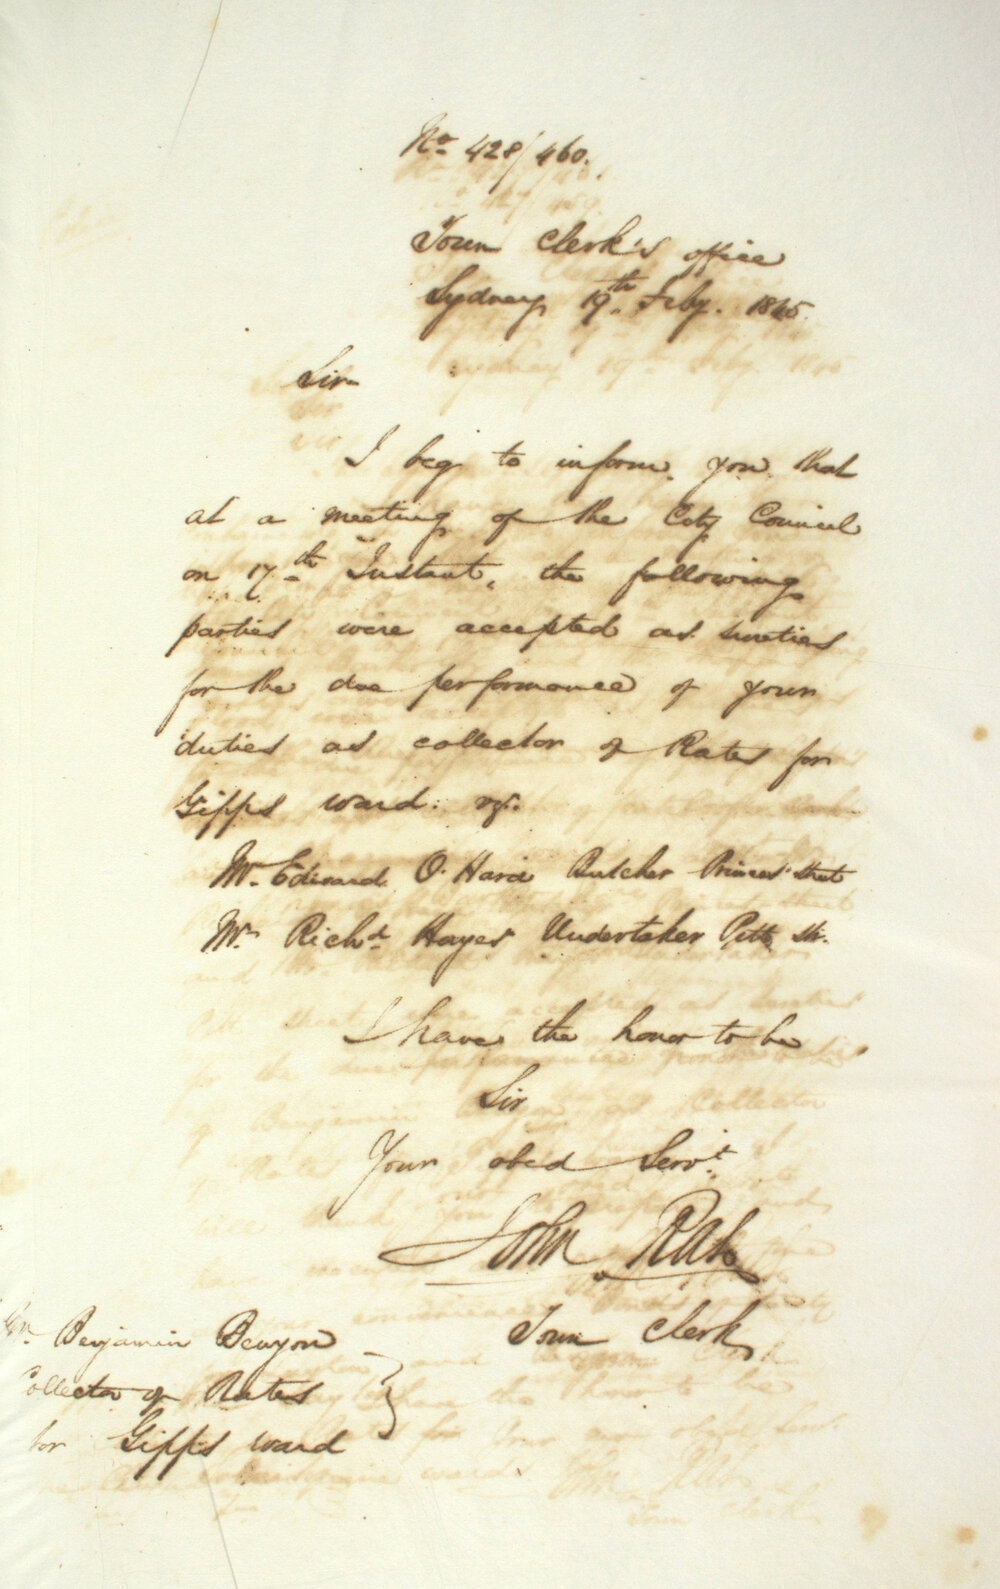 No. 428/460.
Town Clerk's office
Sydney 19th Feby. 1845.
Sir
I beg to inform you that
at a meeting of the City Council
on 17th Instant, the following
parties were accepted as sureties
for the due performance of your
duties as collector of Rates for
Gipps ward.
Mr. Edward O'Hara Butcher Princes' street
Mr. Richd. Hayes Undertaker Pitt St.
I have the honor to be
Sir
Your obed Servt.
John Rae
Town Clerk
Mr. Benjamin Benyon
Collector of Rates
for Gipps ward